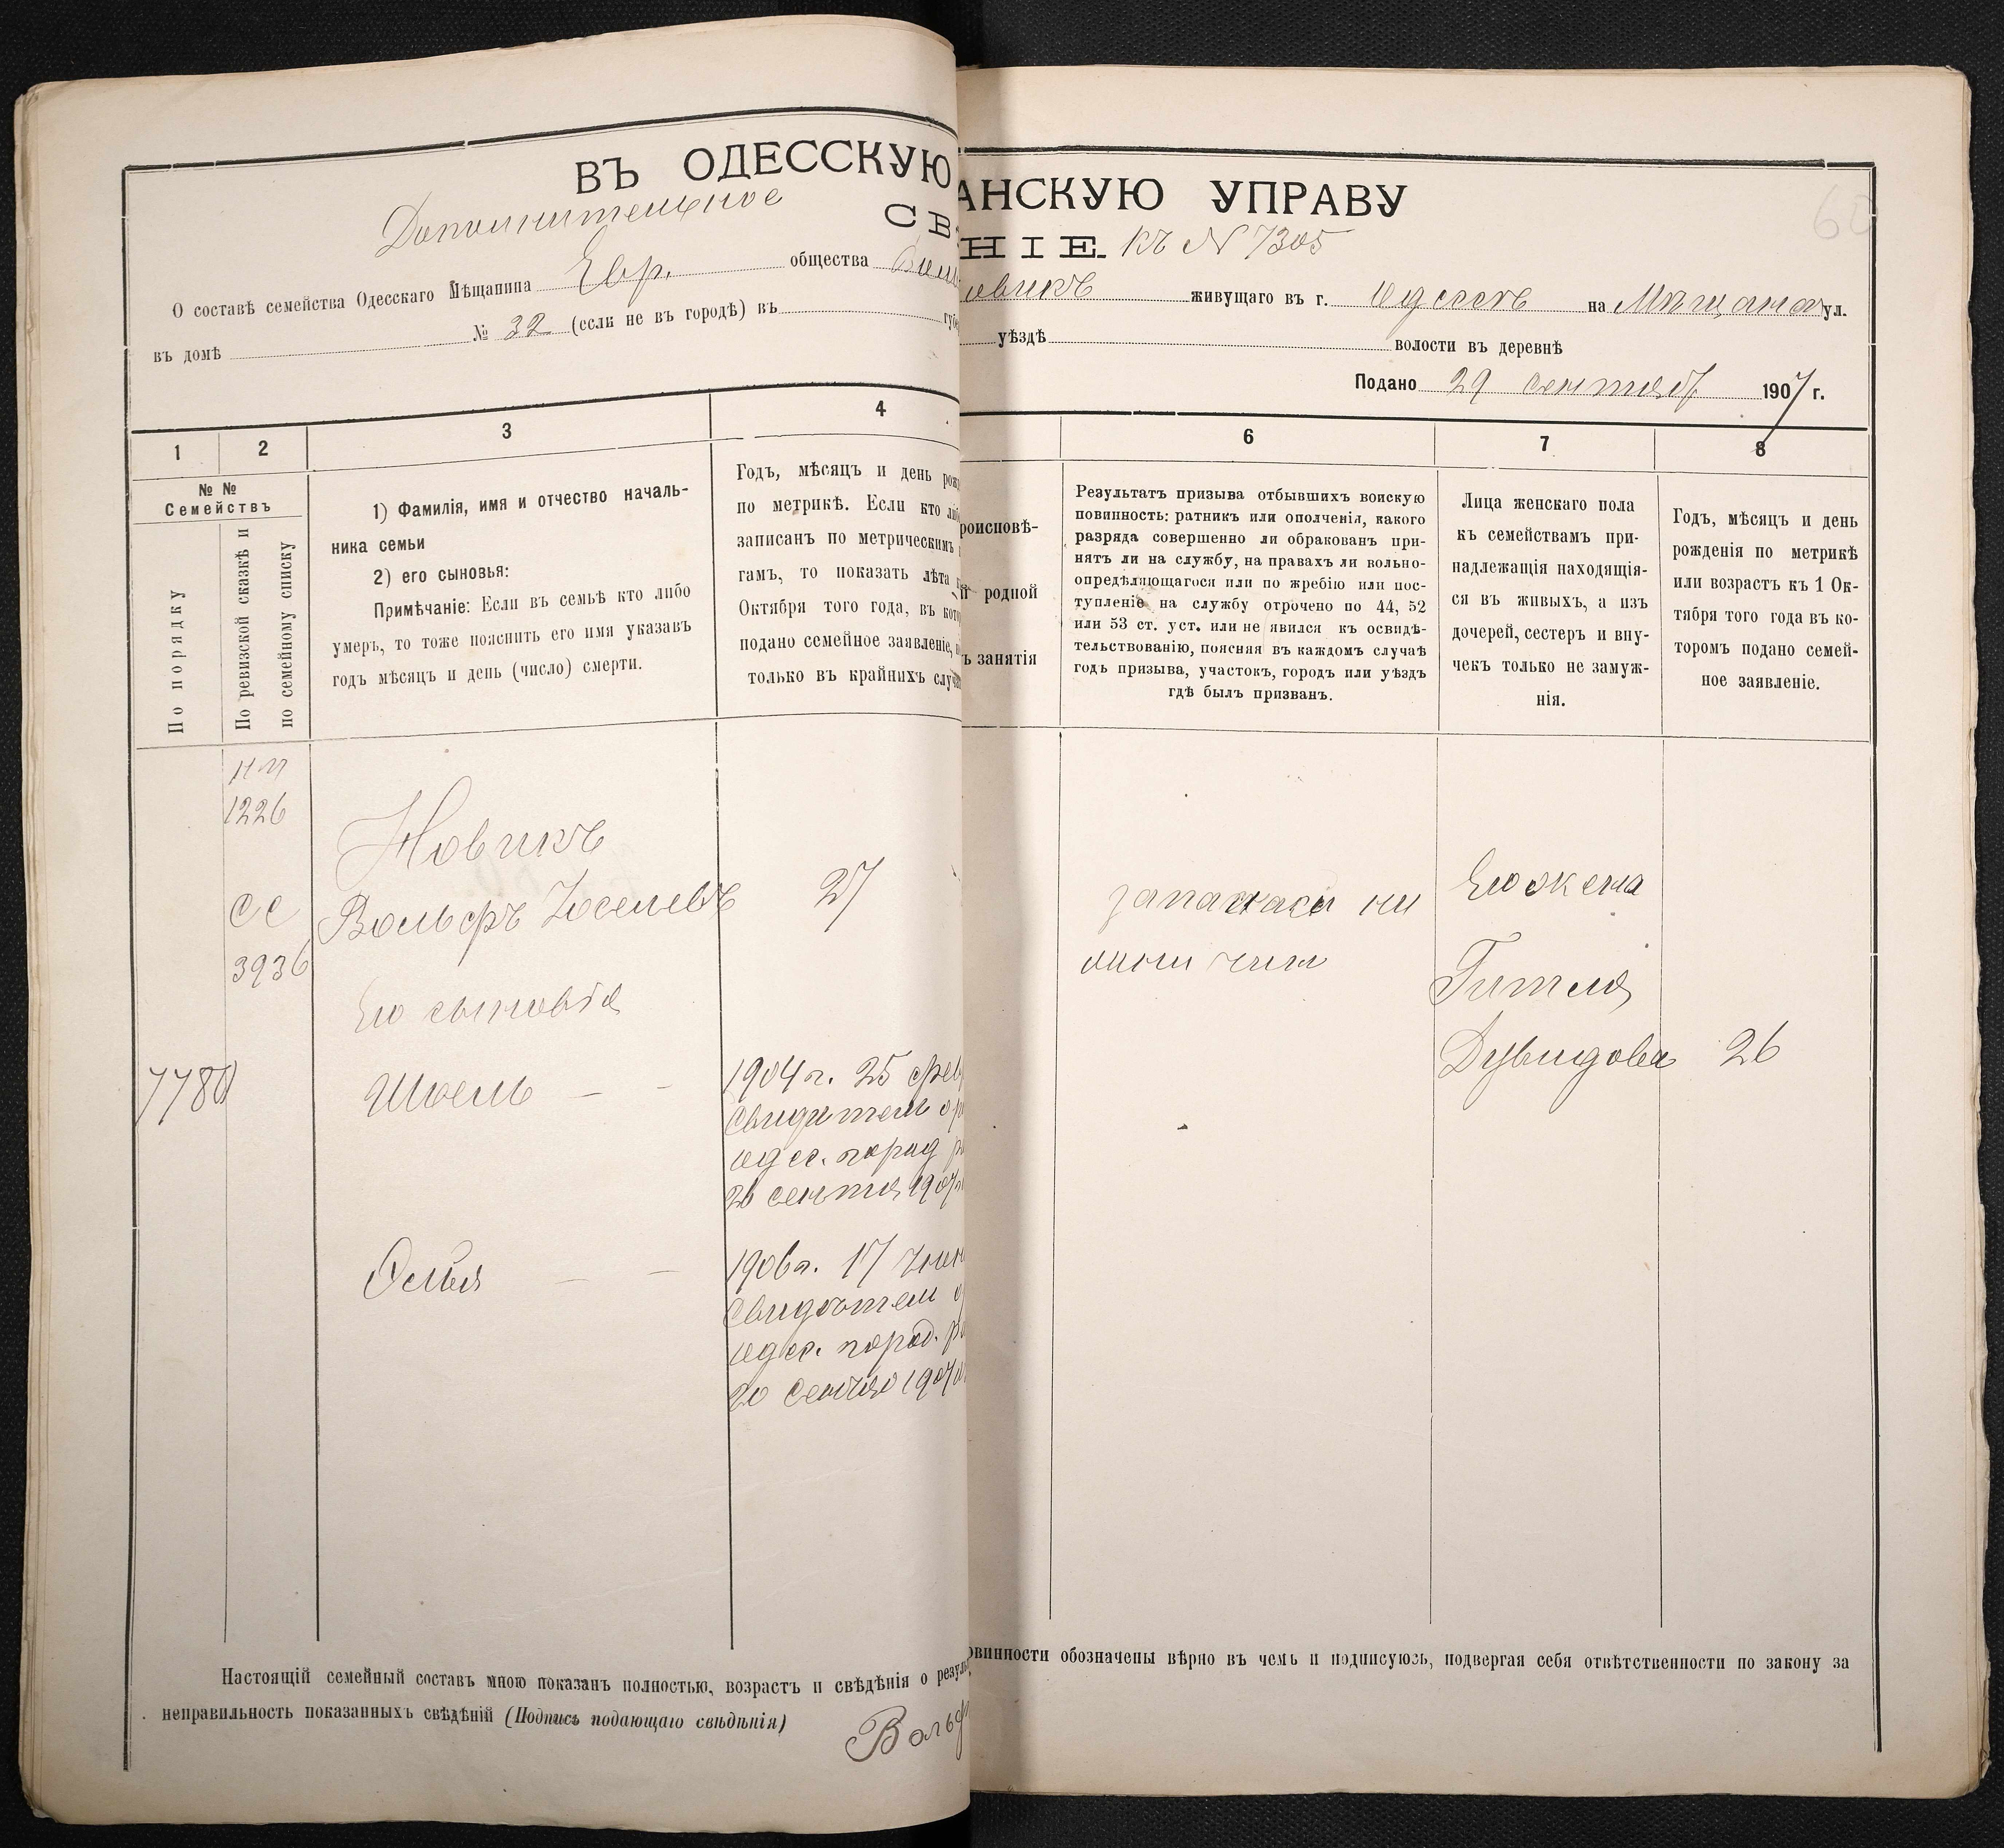 ВЪ ОДЕССКУЮ
АНСКУЮ УПРАВУ
Дополнительное
СВ
НІЕ. къ № 7305
О составѣ семейства Одесскаго Мѣщанина Евр. общества
овикъ живущаго въ г. Одессѣ на Мѣщанск ул.
въ домѣ № 32 (если не въ городѣ) въ губе
уѣздѣ волости въ деревнѣ
Подано 29 сентяб 1907 г.
1
2
3
4
6
7
8
№ №
Семействъ
По порядку
По ревизской сказкѣ и
по семейному списку
1) Фамилія, имя и отчество началь-
ника семьи
2) его сыновья:
Примѣчаніе: Если въ семьѣ кто либо
умеръ, то тоже пояснить его имя указавъ
годъ мѣсяцъ и день (число) смерти.
Годъ, мѣсяцъ и день рожд
по метрикѣ. Если кто либ
записанъ по метрическимъ
гамъ, то показать лѣта
Октября того года, въ кото
подано семейное заявленіе,
только въ крайнихъ случ
роисповѣ-
й родной
ъ занятія
Результатъ призыва отбывшихъ воискую
повинность: ратникъ или ополченія, какого
разряда совершенно ли обракованъ при-
нятъ ли на службу, на правахъ ли вольно-
опредѣляющагося или по жребію или пос-
тупленіе на службу отрочено по 44, 52
или 53 ст. уст. или не явился къ освидѣ-
тельствованію, поясняя въ каждомъ случаѣ
годъ призыва, участокъ, городъ или уѣздъ
гдѣ былъ призванъ.
Лица женскаго пола
къ семействамъ при-
надлежащія находящія-
ся въ живыхъ, а изъ
дочерей, сестеръ и вну-
чекъ только не замуж-
нія.
Годъ, мѣсяцъ и день
рожденія по метрикѣ
или возрастъ къ 1 Ок-
тября того года въ ко-
торомъ подано семей-
ное заявленіе.
1226
Новикъ
СС
Вольфъ Іоселевъ
27
3936
Его сыновія
7780
Шоель — —
1904 г. 25 фев
Свидѣтел
одес. город
20 сентя 1907
Осія — —
1906 г. 17
Свидѣтел
одес. город. р
20 сентя 1907
запаснаси ни
жни чин
Его жена
Гитля
Дувидова
26
Настоящій семейный составъ мною показанъ полностью, возрастъ и свѣдѣнія о резуль
овинности обозначены вѣрно въ чемъ и подписуюсь, подвергая себя отвѣтственности по закону за
неправильность показанныхъ свѣдѣній (Подпись подающаго свѣдѣнія)
Вольф